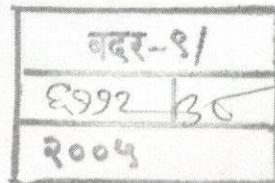 बदर-९/
६११२ ३८
२००५